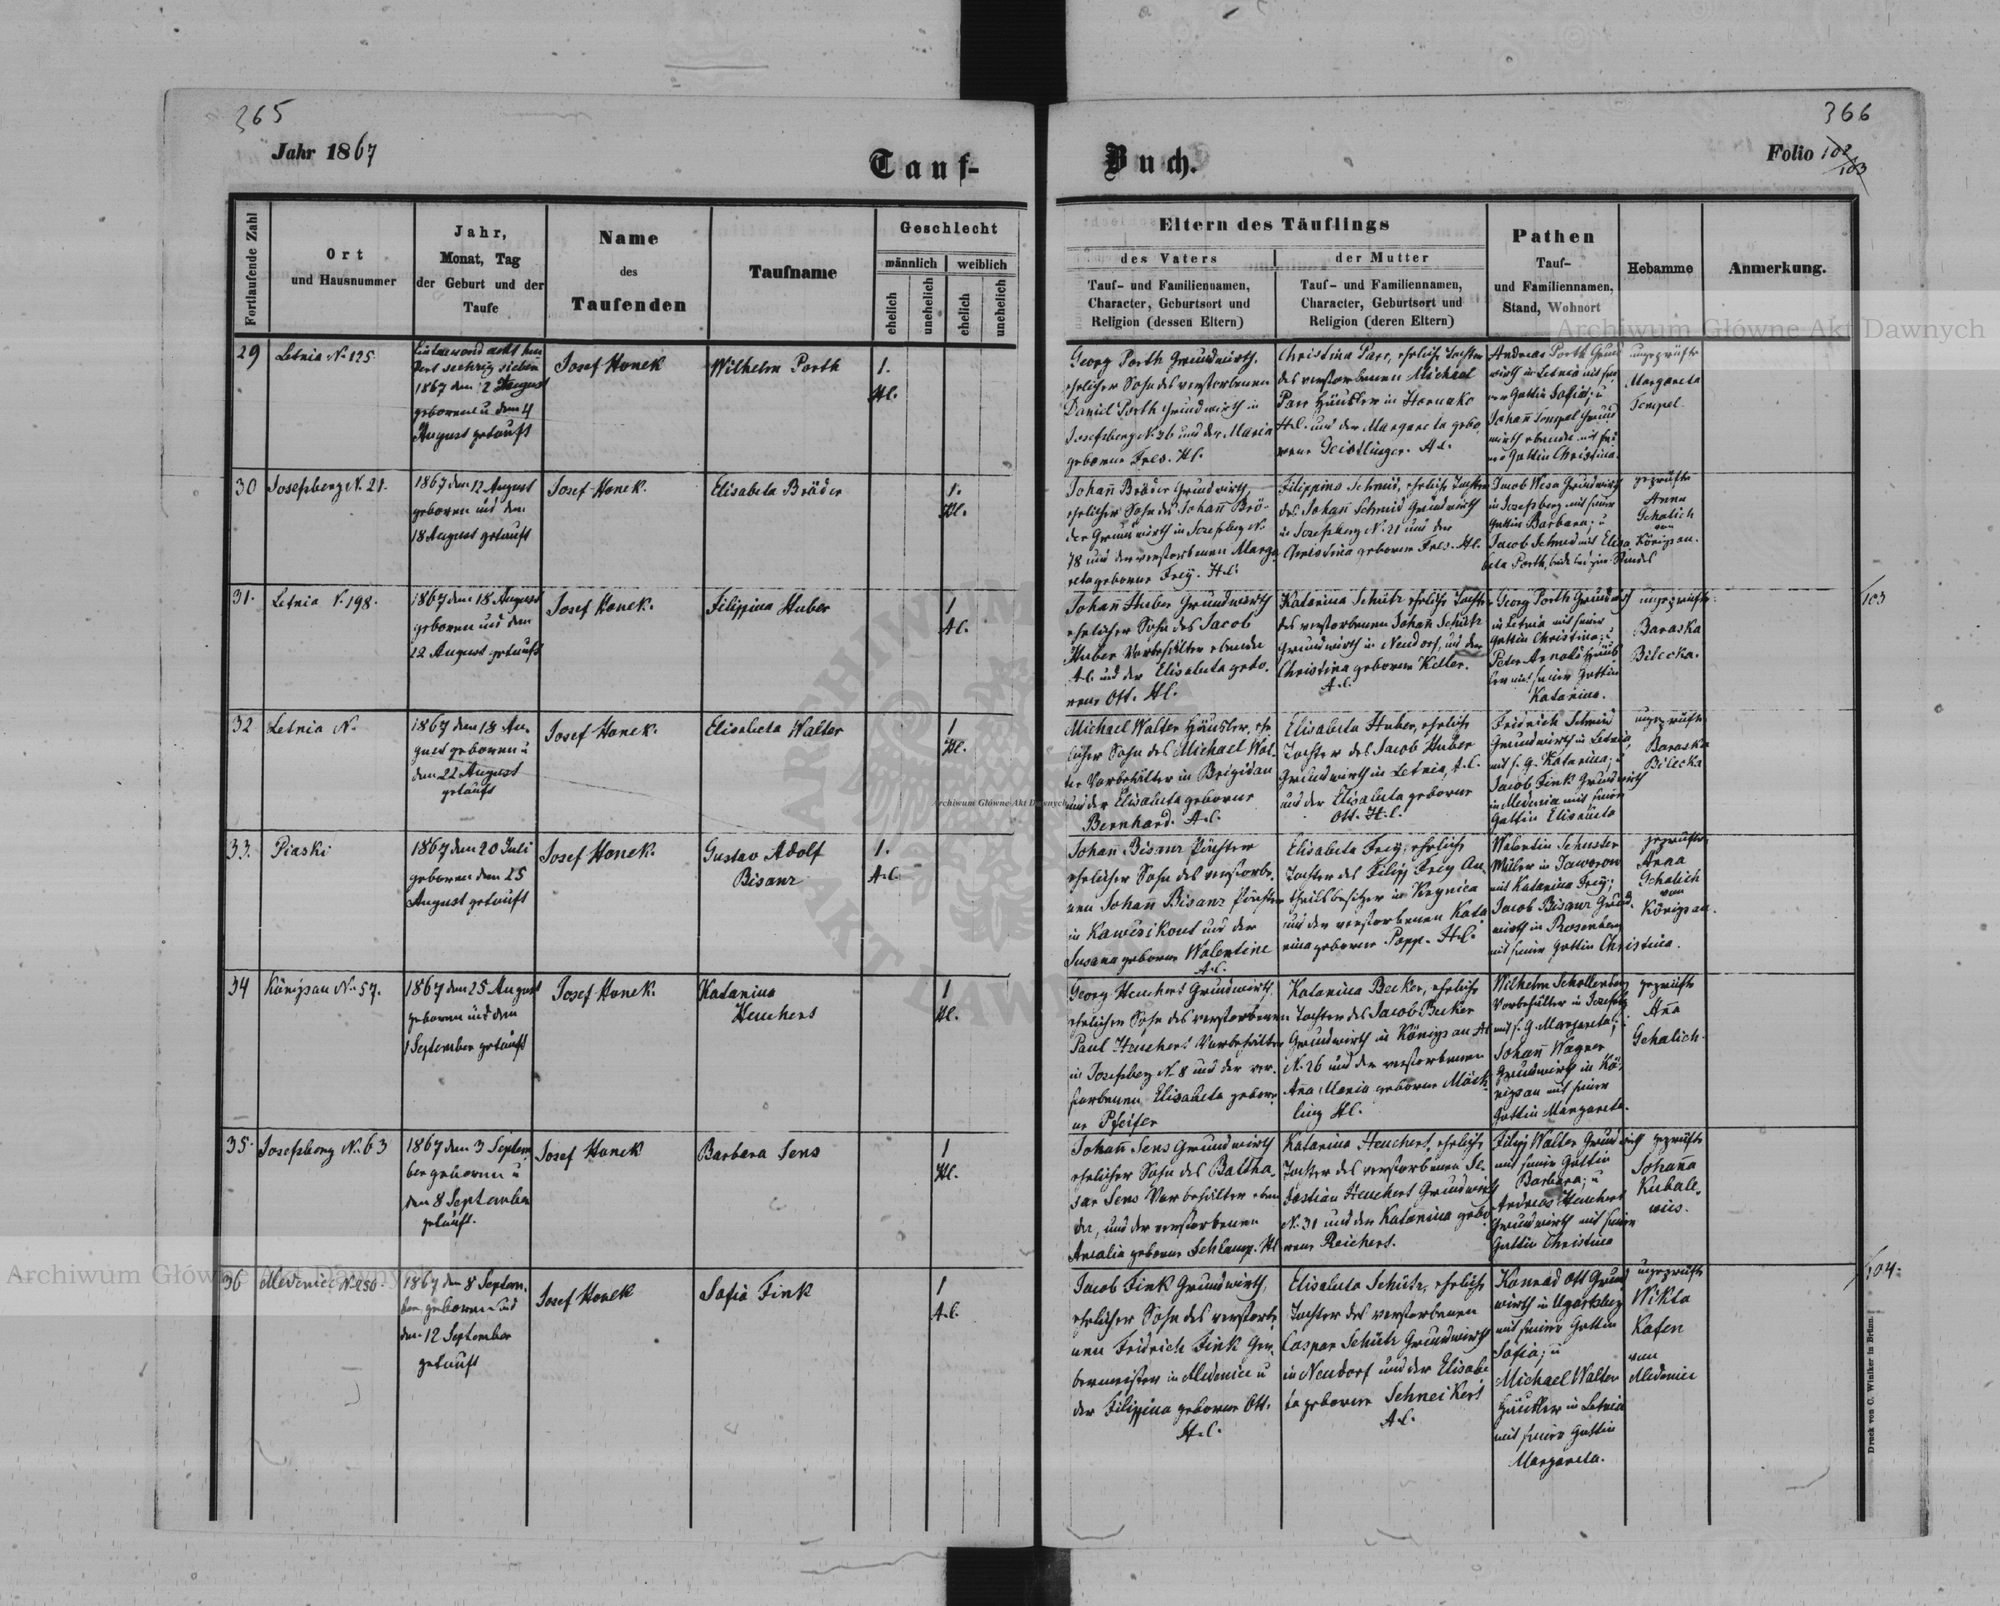 365
366
Jahr 1867
Tauf-
Buch.
Folio 102
103
Fortlaufende Zahl
Ort
und Hausnummer
Jahr,
Monat, Tag
der Geburt und der
Taufe
Name
des
Taufenden
Taufname
Geschlecht
männlich
weiblich
ehelich
unehelich
ehelich
unehelich
Eltern des Täuflings
des Vaters
der Mutter
Tauf- und Familiennamen,
Character, Geburtsort und
Religion (dessen Eltern)
Tauf- und Familiennamen,
Character, Geburtsort und
Religion (deren Eltern)
Pathen
Tauf-
und Familiennamen,
Stand, Wohnort
Hebamme
Anmerkung.
29
Letnia N. 125
Eintausend acht hun
dert sechzig sieben
1867 den 2 August
geboren u den 4
August getauft
Josef Honek
Wilhelm Porth
1.
H.C.
Georg Porth Grundwirth,
ehelicher Sohn des verstorbenen
Daniel Porth Grundwirth in
Josefsberg N. 36 und der Maria
geborne Fres. H.C.
Christina Parr, eheliche Tochter
des verstorbenen Michael
Parr Häusler in Horucko
H.C. und der Margareta gebo
rene Geistlinger. A.C.
Andreas Porth Grund
wirth in Letnia mit sei
ner Gattin Sofia; u
Johann Tempel Grund
wirth ebenda mit sei
ner Gattin Christina.
ungeprüfte
Margareta
Tempel
30
Josefsberg N. 21.
1867 den 12 August
geboren und den
18 August getauft
Josef Honek.
Elisabeta Bräder
1.
H.C.
Johann Bräder Grundwirth
ehelicher Sohn des Johann Brä-
der Grundwirth in Josefsberg N.
78 und der verstorbenen Marga
reta geborne Frey. H.C.
Filippina Schmid, eheliche Tochter
des Johann Schmid Grundwirth
in Josefsberg N. 21 und der
Christina geborne Fres. H.C.
Jacob Wesa Grundwirth
in Josefsberg mit seiner
Gattin Barbara; u
Jacob Schmid mit Elisa
beta Porth, beide ledigen Standes
geprüfte
Anna
Gchalich
von
Königsau.
31.
Letnia N. 198.
1867 den 18 August
geboren und den
22 August getauft
Josef Honek.
Filippina Huber
1
A.C.
Johann Huber Grundwirth
ehelicher Sohn des Jacob
Huber Vorbehälter ebenda
A.C. und der Elisabeta gebo.
rene Ott. H.C.
Katarina Schütz eheliche Tochter
des verstorbenen Johann Schütz
Grundwirth in Neudorf, und der
Christina geborene Keller.
A.C.
Georg Porth Grundwirth
in Letnia mit seiner
Gattin Christina; u
Peter Arnold Häus
ler mit seiner Gattin
Katarina.
ungeprüfte
Baraska
Bilecka.
103
32
Letnia N.
1867 den 18 Au-
gust geboren u
den 22 August
getauft
Josef Honek.
Elisabeta Walter
1
H.C.
Michael Walter Häusler, ehe
licher Sohn des Michael Wal-
ter Vorbehälter in Brigidau
und der Elisabeta geborne
Bernhard. A.C.
Elisabeta Huber, eheliche
Tochter des Jacob Huber
Grundwirth in Letnia, A.C.
und der Elisabeta geborne
Ott. H.C.
Fridrich Schmid
Grundwirth in Letnia,
mit s. G. Katarina; u
Jacob Fink Grundwirth
in Medenice mit seiner
Gattin Elisabeta
ungeprüfte
Baraska
Bilecka
33.
Piaski
1867 den 20 Juli
geboren den 25
August getauft
Josef Honek.
Gustav Adolf
Bisanz
1.
A.C.
Johann Bisanz Pächter
ehelicher Sohn des verstorbe.
nen Johann Bisanz Pächter
in Kawczikont und der
Susana geborne Walentine
A.C.
Elisabeta Frey, eheliche
Tochter des Filipp Frey An
theilsbesitzer in Krynica
und der verstorbenen Kata
rina geborne Popp. H.C.
Walentin Schuster
Müller in Jaworow
mit Katarina Frey;
Jacob Bisanz Grund
wirth in Rosenberg
mit seiner Gattin Christina.
geprüfte
Anna
Gchalich
von
Königsau.
34
Königsau N. 57.
1867 den 25 August
geboren und den
1 September getauft
Josef Honek.
Katarina
Heuchert
1
H.C.
Georg Heuchert Grundwirth,
ehelicher Sohn des verstorbenen
Paul Heuchert Vorbehälter
in Josefsberg N. 8 und der ver-
storbenen Elisabeta gebor
ne Pfeifer
Katarina Becker, eheliche
Tochter des Jacob Becker
Grundwirth in Königsau A.C.
N. 26 und der verstorbenen
Anna Maria geborne Mäck
ling H.C.
Wilhelm Schollenberg
Vorbehälter in Josefsberg
mit s. G. Margareta; u
Johann Wagner
Grundwirth in Kö-
nigsau mit seiner
Gattin Margareta.
geprüfte
Anna
Gchalich.
35.
Josefsberg N. 63
1867 den 3 Septem
ber geboren u
den 8 September
getauft.
Josef Honek
Barbara Sens
1
H.C.
Johann Sens Grundwirth
ehelicher Sohn des Baltha
sar Sens Vorbehälter eben
da, und der verstorbenen
Amalia geborne Schlamp. H.C.
Katarina Heuchert, eheliche
Tochter des verstorbenen Se-
bastian Heuchert Grundwirth
N. 31 und der Katarina gebo
rene Reichert.
Filipp Walter Grundwirth
mit seiner Gattin
Barbara; u
Andreas Heuchert
Grundwirth mit seiner
Gattin Christina
geprüfte
Johanna
Kubale-
wics.
36
Medenice N. 250.
1867 den 8 Septem-
ber geboren und
den 12 September
getauft
Josef Honek
Sofia Fink
1
A.C.
Jacob Fink Grundwirth,
ehelicher Sohn des verstorbe
nen Fridrich Fink Ger-
bermeister in Medenice u
der Filippina geborne Ott.
H.C.
Elisabeta Schütz, eheliche
Tochter des verstorbenen
Caspar Schütz Grundwirth
in Neudorf und der Elisabe
ta geborne Schneikert
A.C.
Konrad Ott Grund
wirth in Ugartsberg
mit seiner Gattin
Sofia; u
Michael Walter
Häusler in Letnia
mit seiner Gattin
Margareta.
ungeprüfte
Wikta
Kafen
von
Medenice
104.
Druck von C. Winiker in Brünn.
Archiwum Główne Akt Dawnych
Archiwum Główne Akt Dawnych
Archiwum Główne Akt Dawnych
ARCHIWUM
AKT DAWNYCH